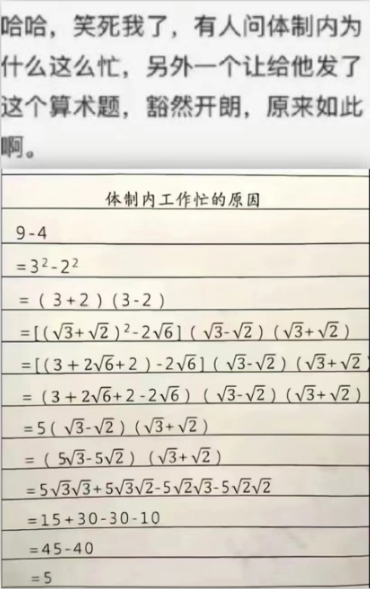 哈哈，笑死我了，有人问体制内为
什么这么忙，另外一个让给他发了
这个算术题，豁然开朗，原来如此
啊。
体制内工作忙的原因
9-4
=3²-2²
=（3+2）(3-2）
=[(√3+√2)²-2√6]（√3-√2）（√3+√2）
=[(3+2√6+2）-2√6]（√3-√2）（√3+√2）
=（3+2√6+2-2√6）（√3-√2）（√3+√2）
=5（√3-√2）（√3+√2）
=（5√3-5√2）（√3+√2）
=5√3√3+5√3√2-5√2√3-5√2√2
=15+30-30-10
=45-40
=5